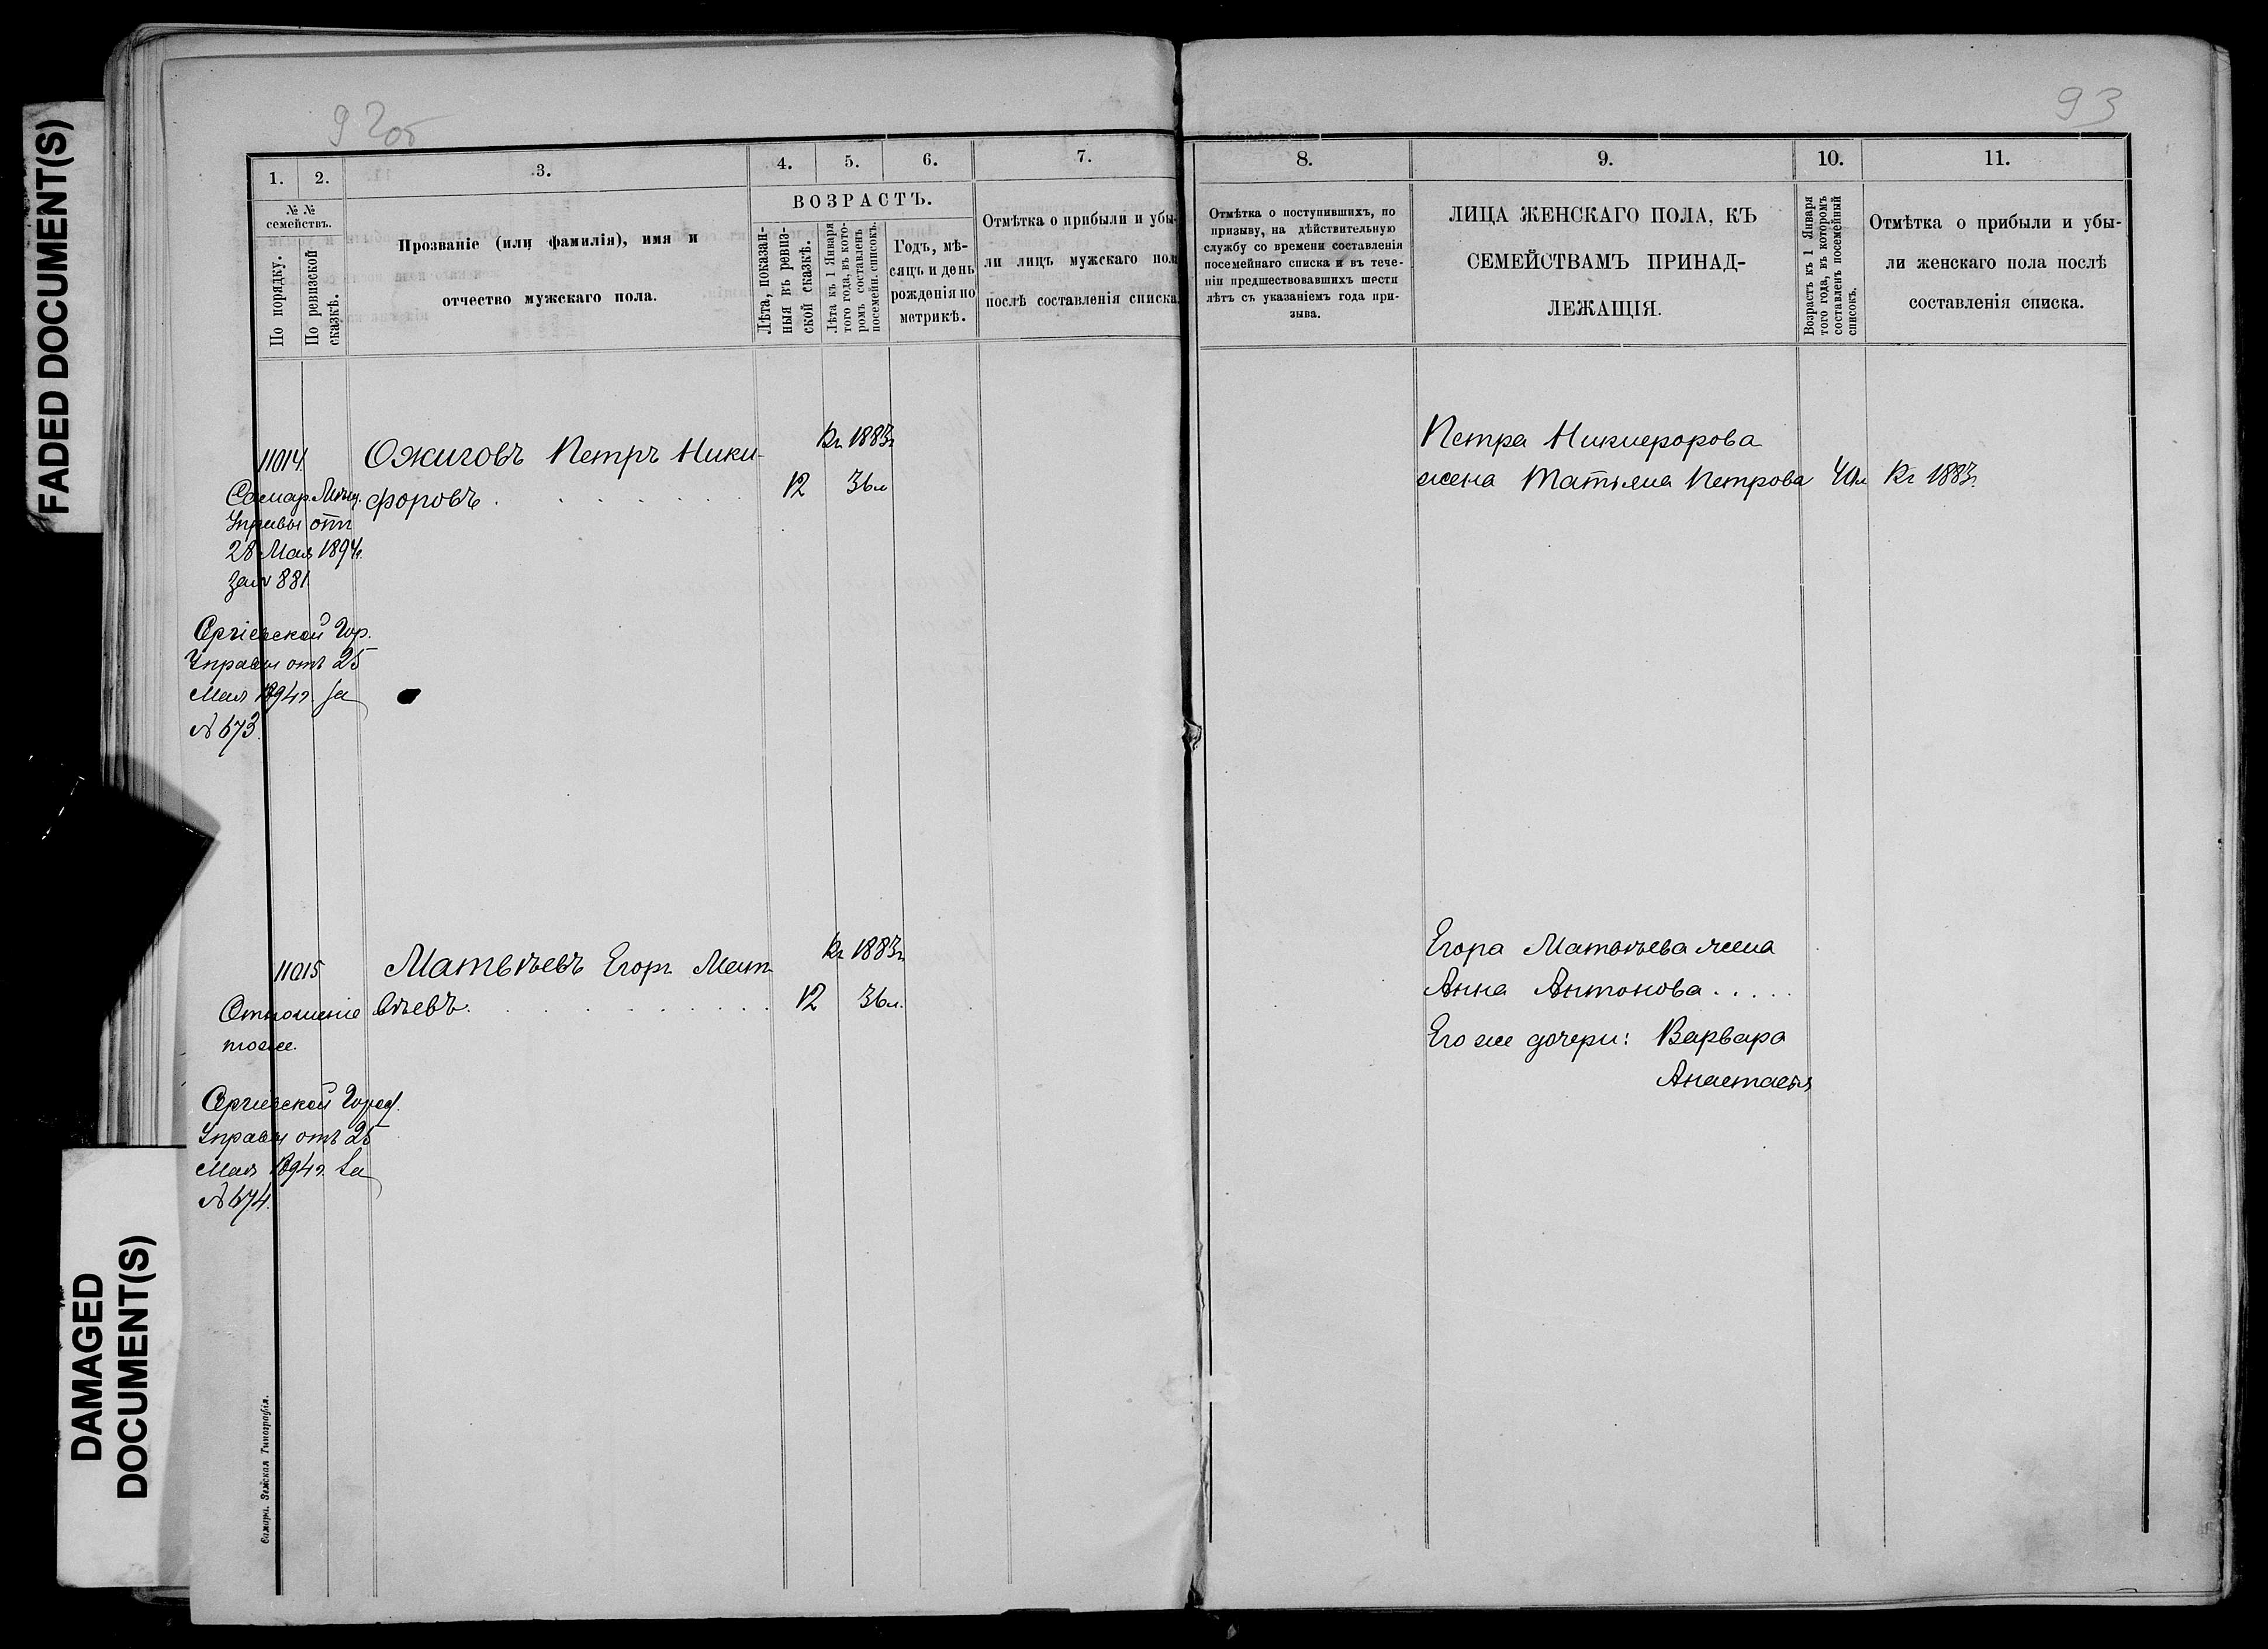 FADED DOCUMENT(S)
DAMAGED
DOCUMENT(S)
92об
1. 2. 3. 4. 5. 6. 7.
№ №
семействъ.
По порядку.
По ревизской
сказкѣ.
Прозваніе (или фамилія), имя и
отчество мужскаго пола.
ВОЗРАСТЪ.
Лѣта, показан-
ныя въ ревиз-
ской сказкѣ.
Лѣта къ 1 Января
того года, въ кото-
ромъ составленъ
посемейн. списокъ.
Годъ, мѣ-
сяцъ и день
рожденія по
метрикѣ.
Отмѣтка о прибыли и убы-
ли лицъ мужскаго пола
послѣ составленія списка.
11014.
Ожиговъ Петръ Ники-
форовъ
Къ 1883г
12 36л
Самар. Мѣщ.
Управы отъ
28 Мая 1894г.
за № 881
Сргіевской Гор.
Управы отъ 25
Мая 1894г. за
№ 673.
11015
Матвѣевъ Егоръ Мат-
вѣевъ.
Къ 1883г
12 36л.
Отношеніе
тоже.
Сргіевской Город.
Управы отъ 25
Мая 1894г. за
№ 674.
Самара. Земская Типографія.
93
8. 9. 10. 11.
Отмѣтка о поступившихъ, по
призыву, на дѣйствительную
службу со времени составленія
посемейнаго списка и въ тече-
ніи предшествовавшихъ шести
лѣтъ съ указаніемъ года при-
зыва.
ЛИЦА ЖЕНСКАГО ПОЛА, КЪ
СЕМЕЙСТВАМЪ ПРИНАД-
ЛЕЖАЩІЯ.
Возрастъ къ 1 Января
того года, въ которомъ
составленъ посемейный
списокъ.
Отмѣтка о прибыли и убы-
ли женскаго пола послѣ
составленія списка.
Петра Никифорова
жена Татьяна Петрова 40л Къ 1883г.
Егора Матвѣева жена
Анна Антонова . . . . .
Его же дочери: Варвара
Анастасія